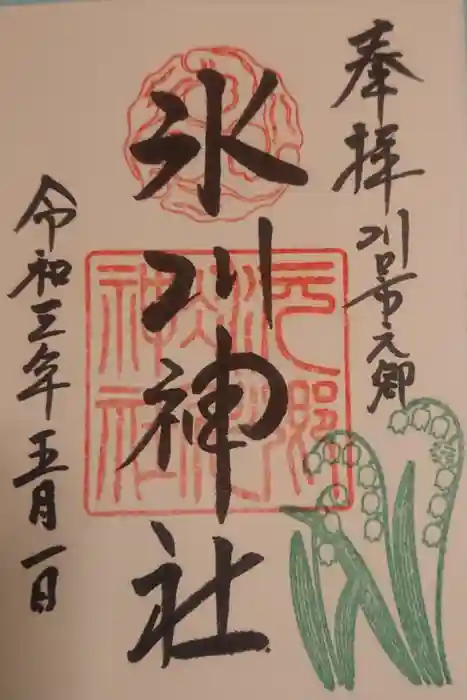 奉拝 川口市元郷
氷川神社
元郷氷川神社
令和三年五月一日